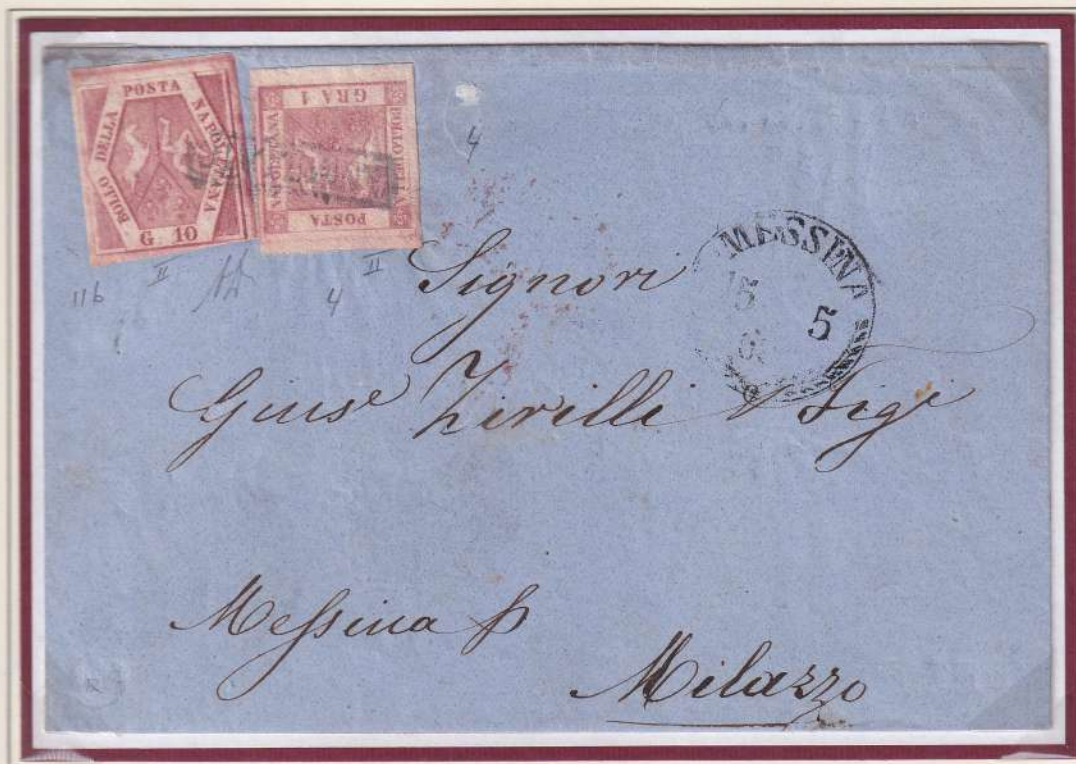 BOLLO DELLA POSTA NAPOLETANA
G. 10
GRA 1
BOLLO DELLA
POSTA
NAPOLETANA
4
II
II
11b
4
MESSINA
15
5
Signori
Giuse Zirilli & Figi
Messina p
Milazzo